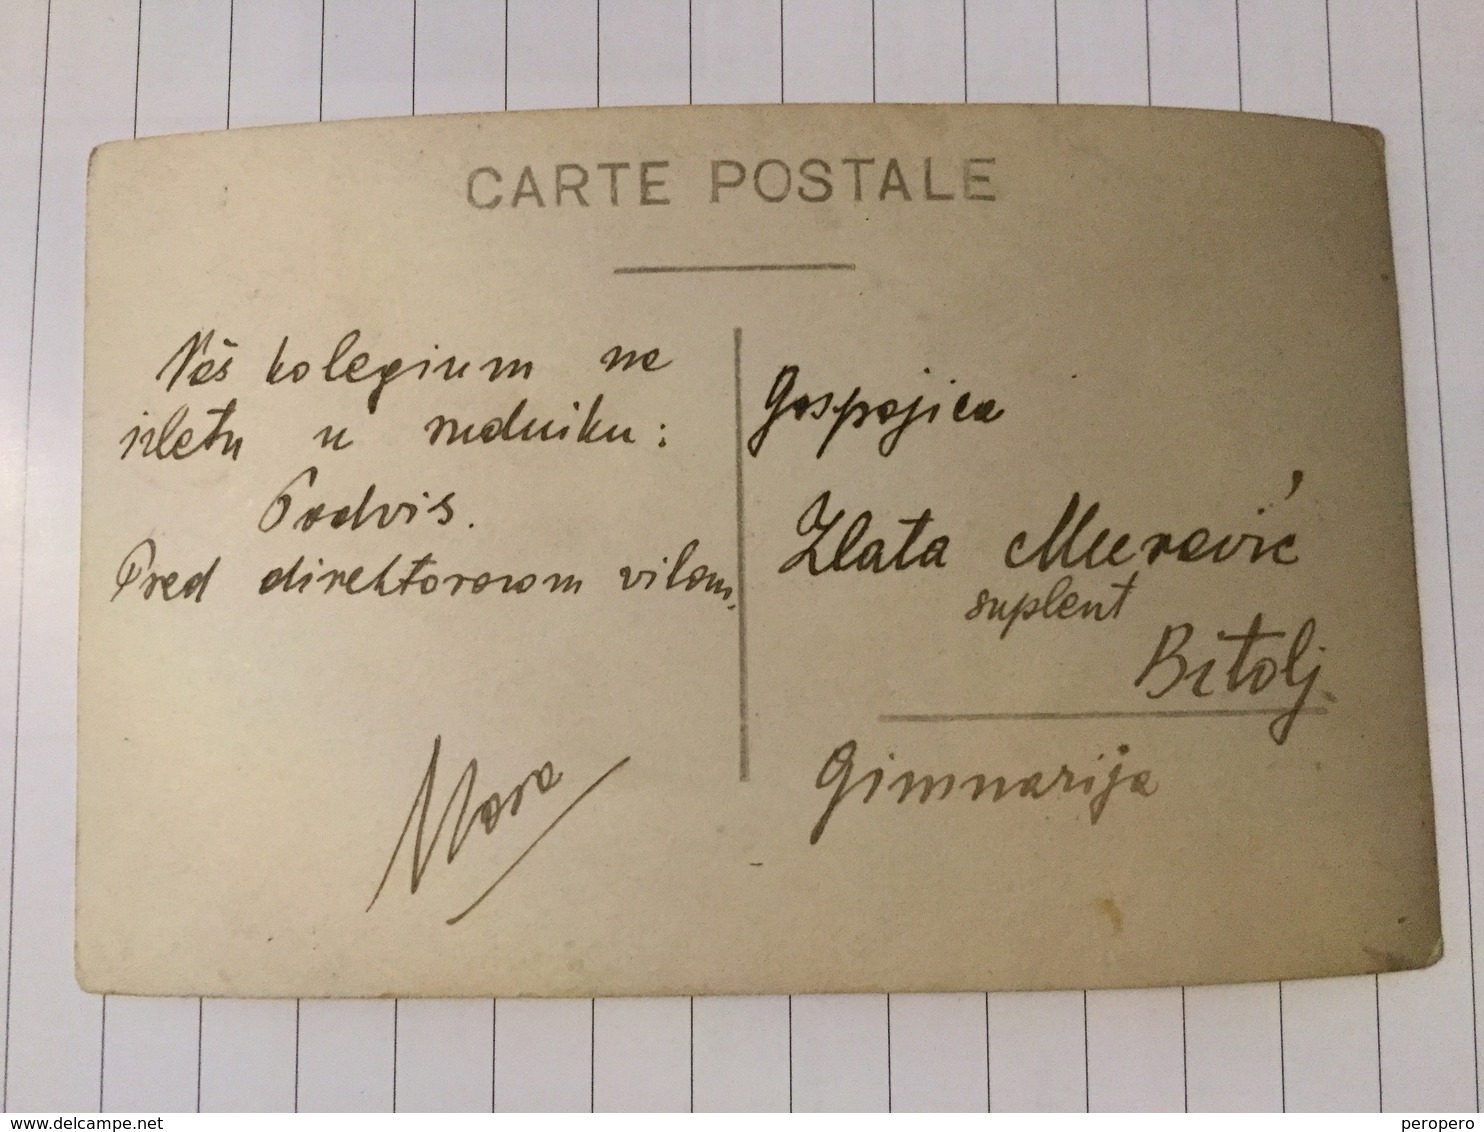 CARTE POSTALE
Naš kolegium na
izletu u rudniku:
Podvis.
Pred direktorovom vilom.
Mara
Gospojica
Zlata Muravić
suplent
Bitolj
Gimnazija
delcampe.net
peropero